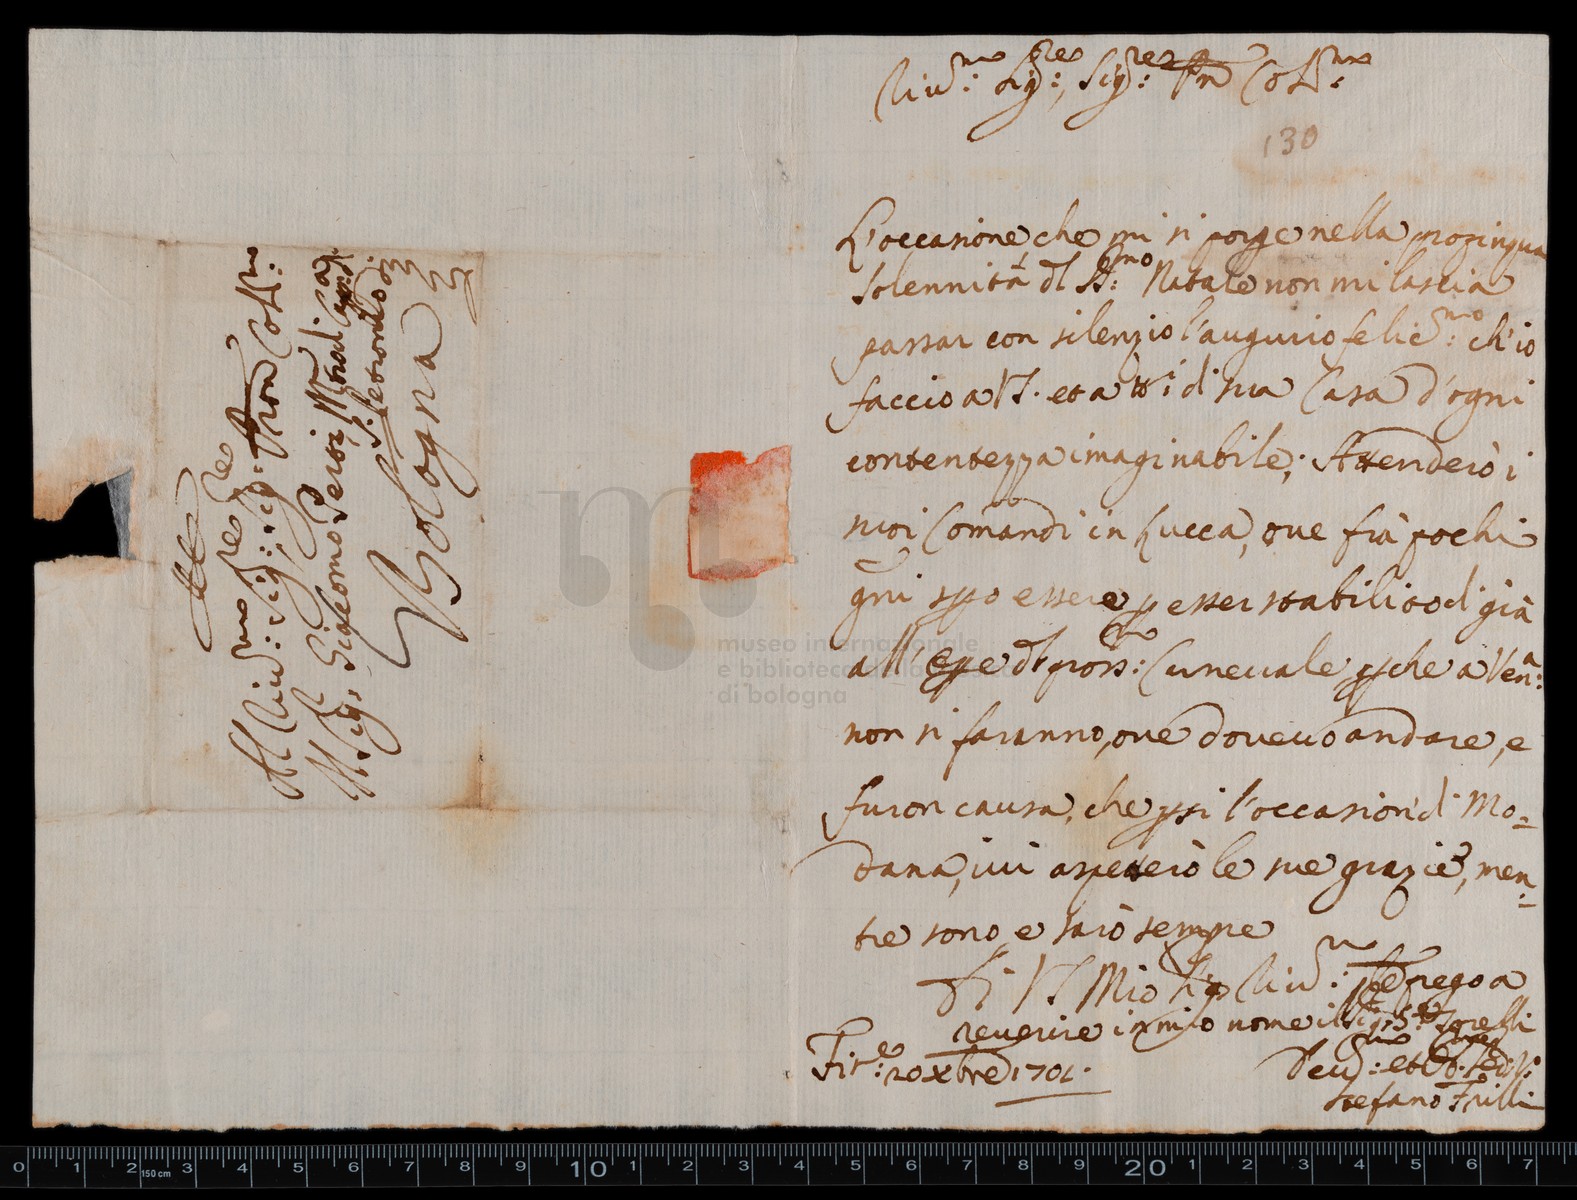 Riv:mo Sig:re, Sig:re e Pron Col:mo
130
L'occasione che mi si porge nella prozinqua
solennità del S:mo Natale non mi lascia
passar con silenzio l'augurio felic:mo ch'io
faccio a VS. et a tti di sua Casa d'ogni
contentezza imaginabile; Attenderò i
suoi Comandi in Lucca, ove frà pochi
gni spo essere p esser stabilito di già
all' Ope del pros:mo Carnevale, pche a Ven:a
non si faranno, ove dovevo andare, e
furon causa, che psi l'occasion di Mo=
dana, ivi aspetterò le sue grazie, men=
tre sono, e sarò sempre
Di VS Mio Sig Riv:mo la prego a
reverire in mio nome il Sig: Torelli
Fir:e 20 Xbre 1701.
Dev:mo et Ob: Ser: V:o
Stefano Frilli
All
Al Riv:mo Sig:re, Sig:re Pron Col:mo
Il Sig: Giacomo Perti, Mro di Capp:a di
S. Petronio
Bologna
museo internazionale
e biblioteca della musica
di bologna
0 1 2 150 cm 3 4 5 6 7 8 9 10 1 2 3 4 5 6 7 8 9 20 1 2 3 4 5 6 7